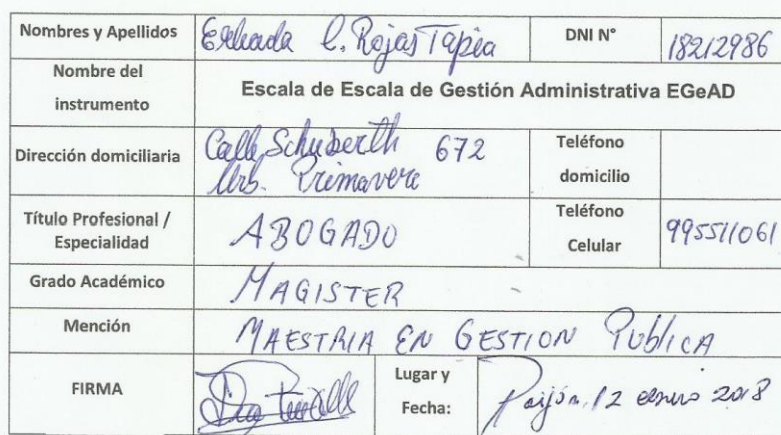 Nombres y Apellidos C. Rojas Tapia DNI N° 18212986
Nombre del
instrumento
Escala de Escala de Gestión Administrativa EGeAD
Dirección domiciliaria Calle Schuberth 672
Urb. Primavera
Teléfono
domicilio
Título Profesional /
Especialidad
ABOGADO
Teléfono
Celular
995511061
Grado Académico MAGISTER
Mención MAESTRIA EN GESTION PUBLICA
FIRMA
Lugar y
Fecha:
Paiján, 12 enero 2018